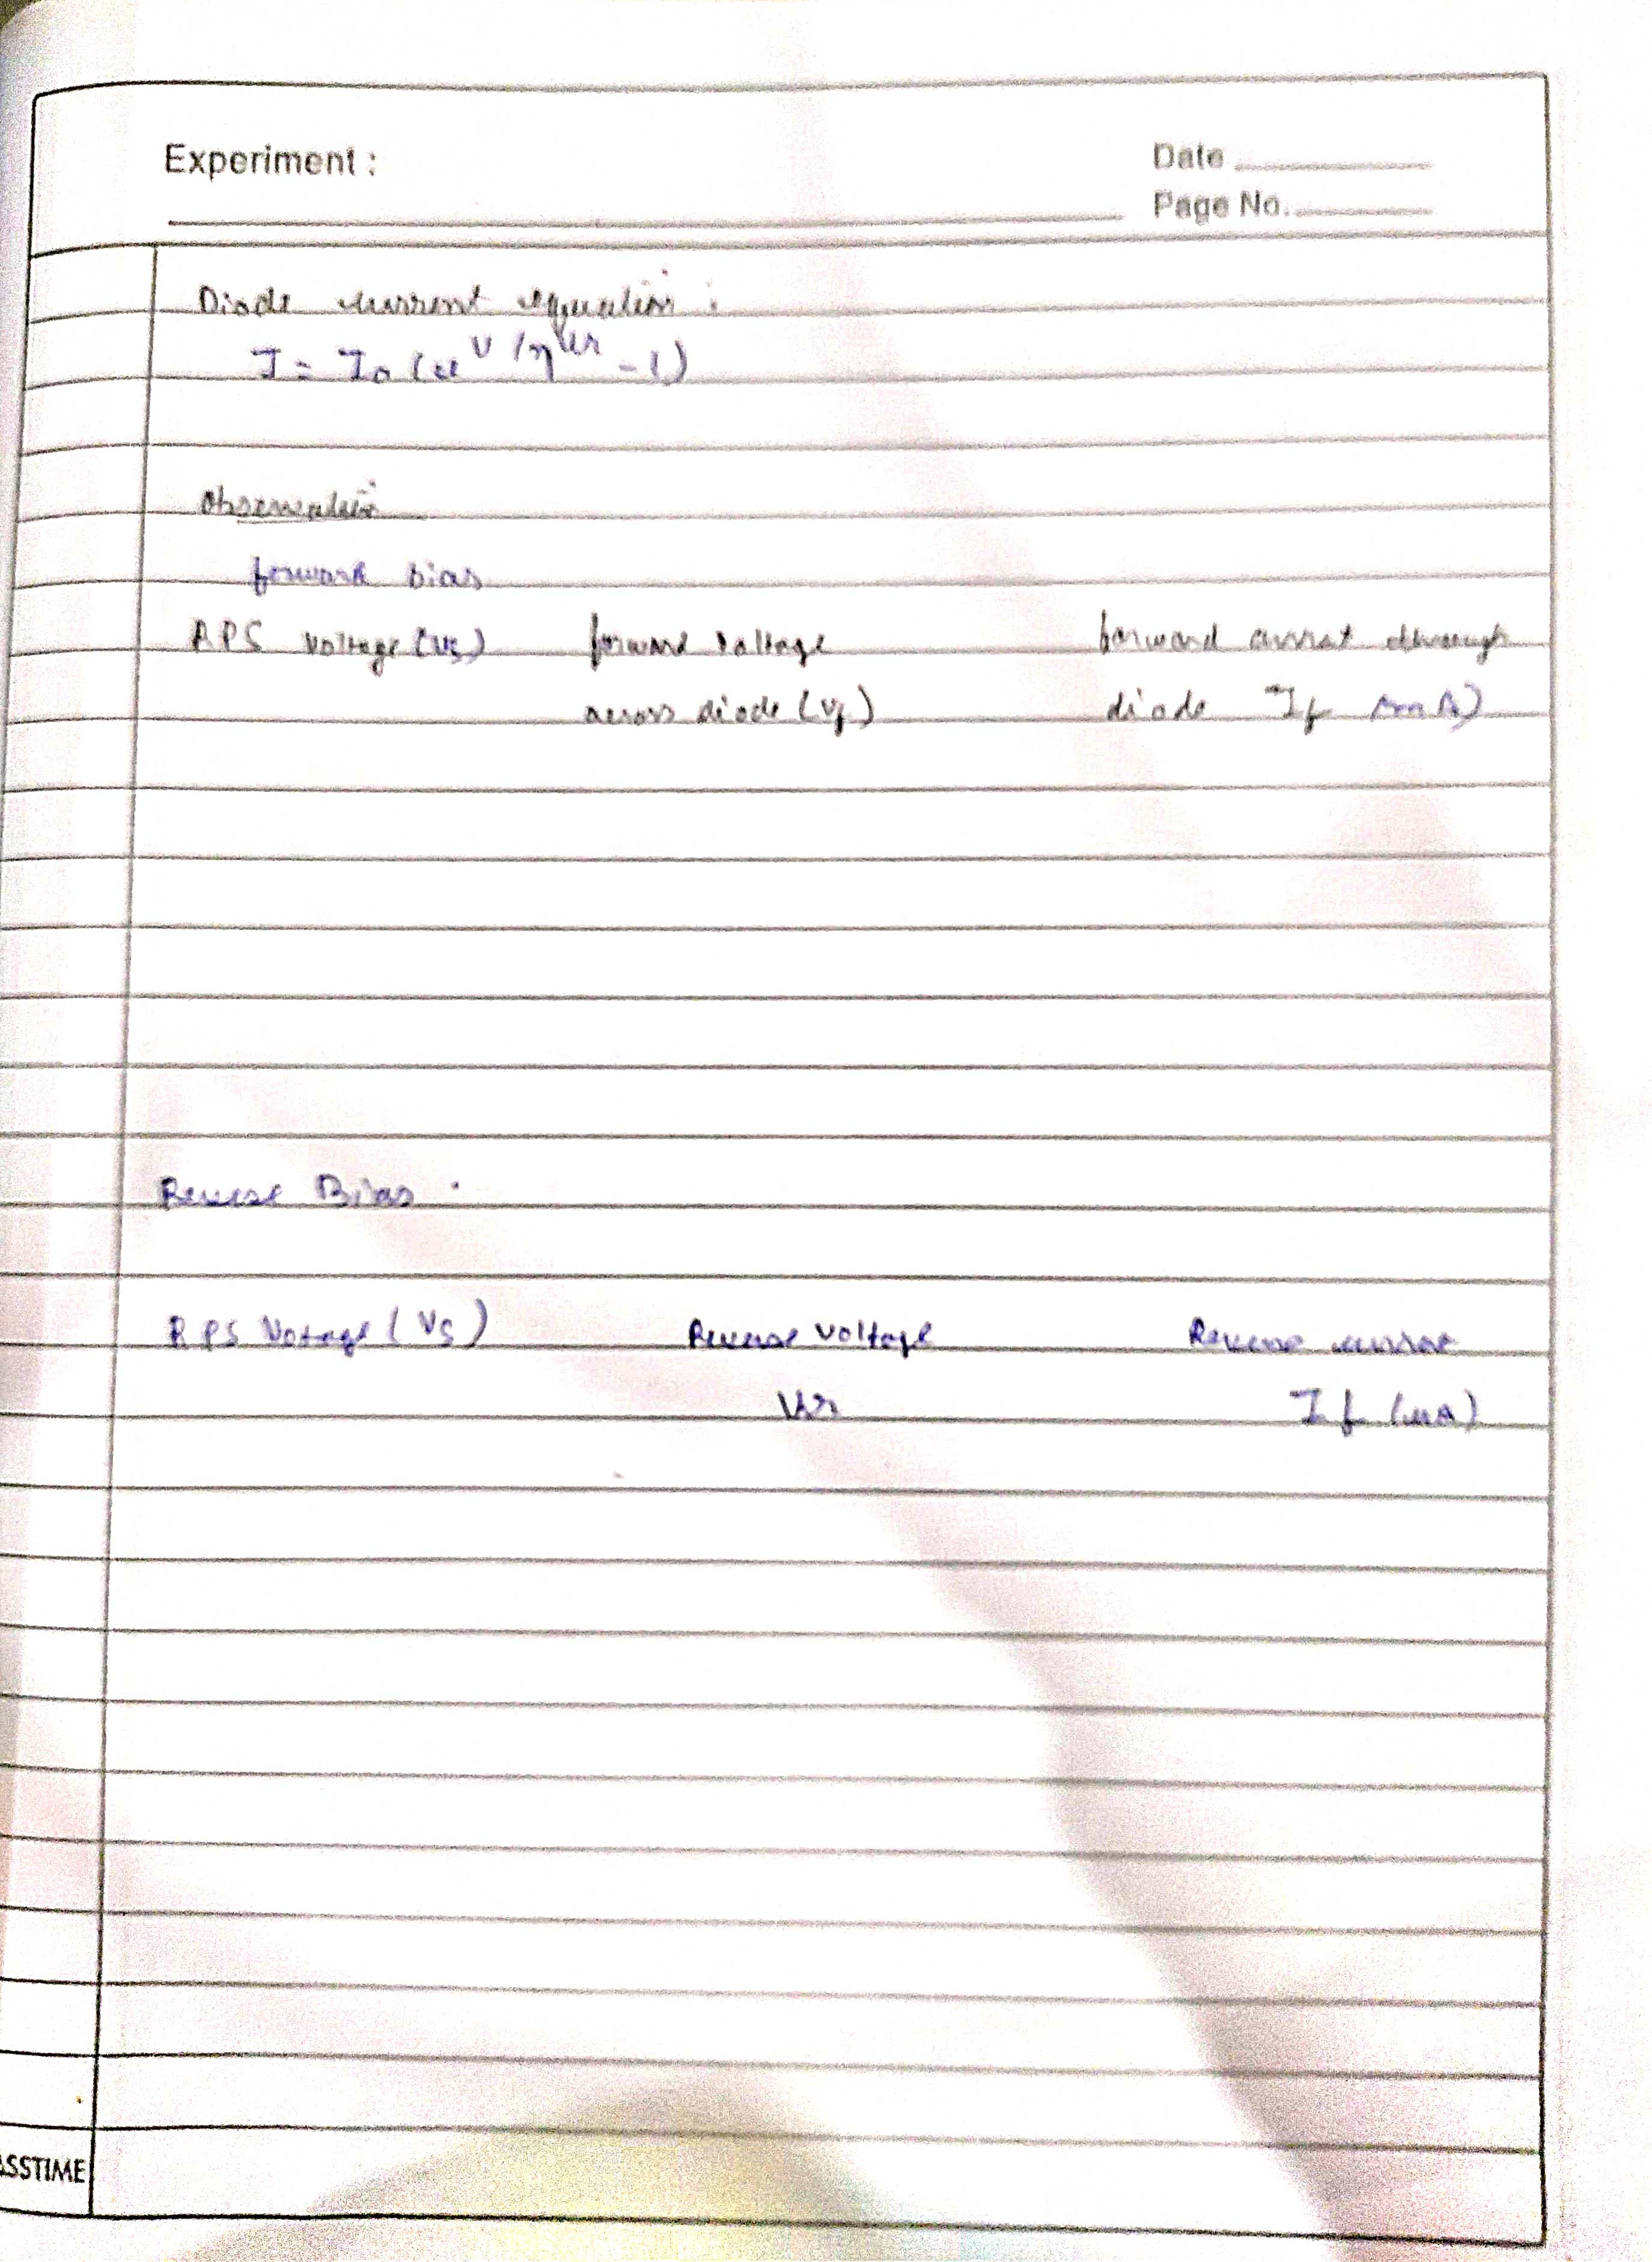 Experiment :
Date
Page No.
Diode current equation :
I = Io (e^V/η^Vr - 1)
Observation
forward bias
RPS Voltage (Vs) forward voltage forward currat through
across diode (Vf) diode If (mA)
Reverse Bias .
RPS Votage (Vs) Reverse voltage Reverse
Vr If (uA)
ASSTIME